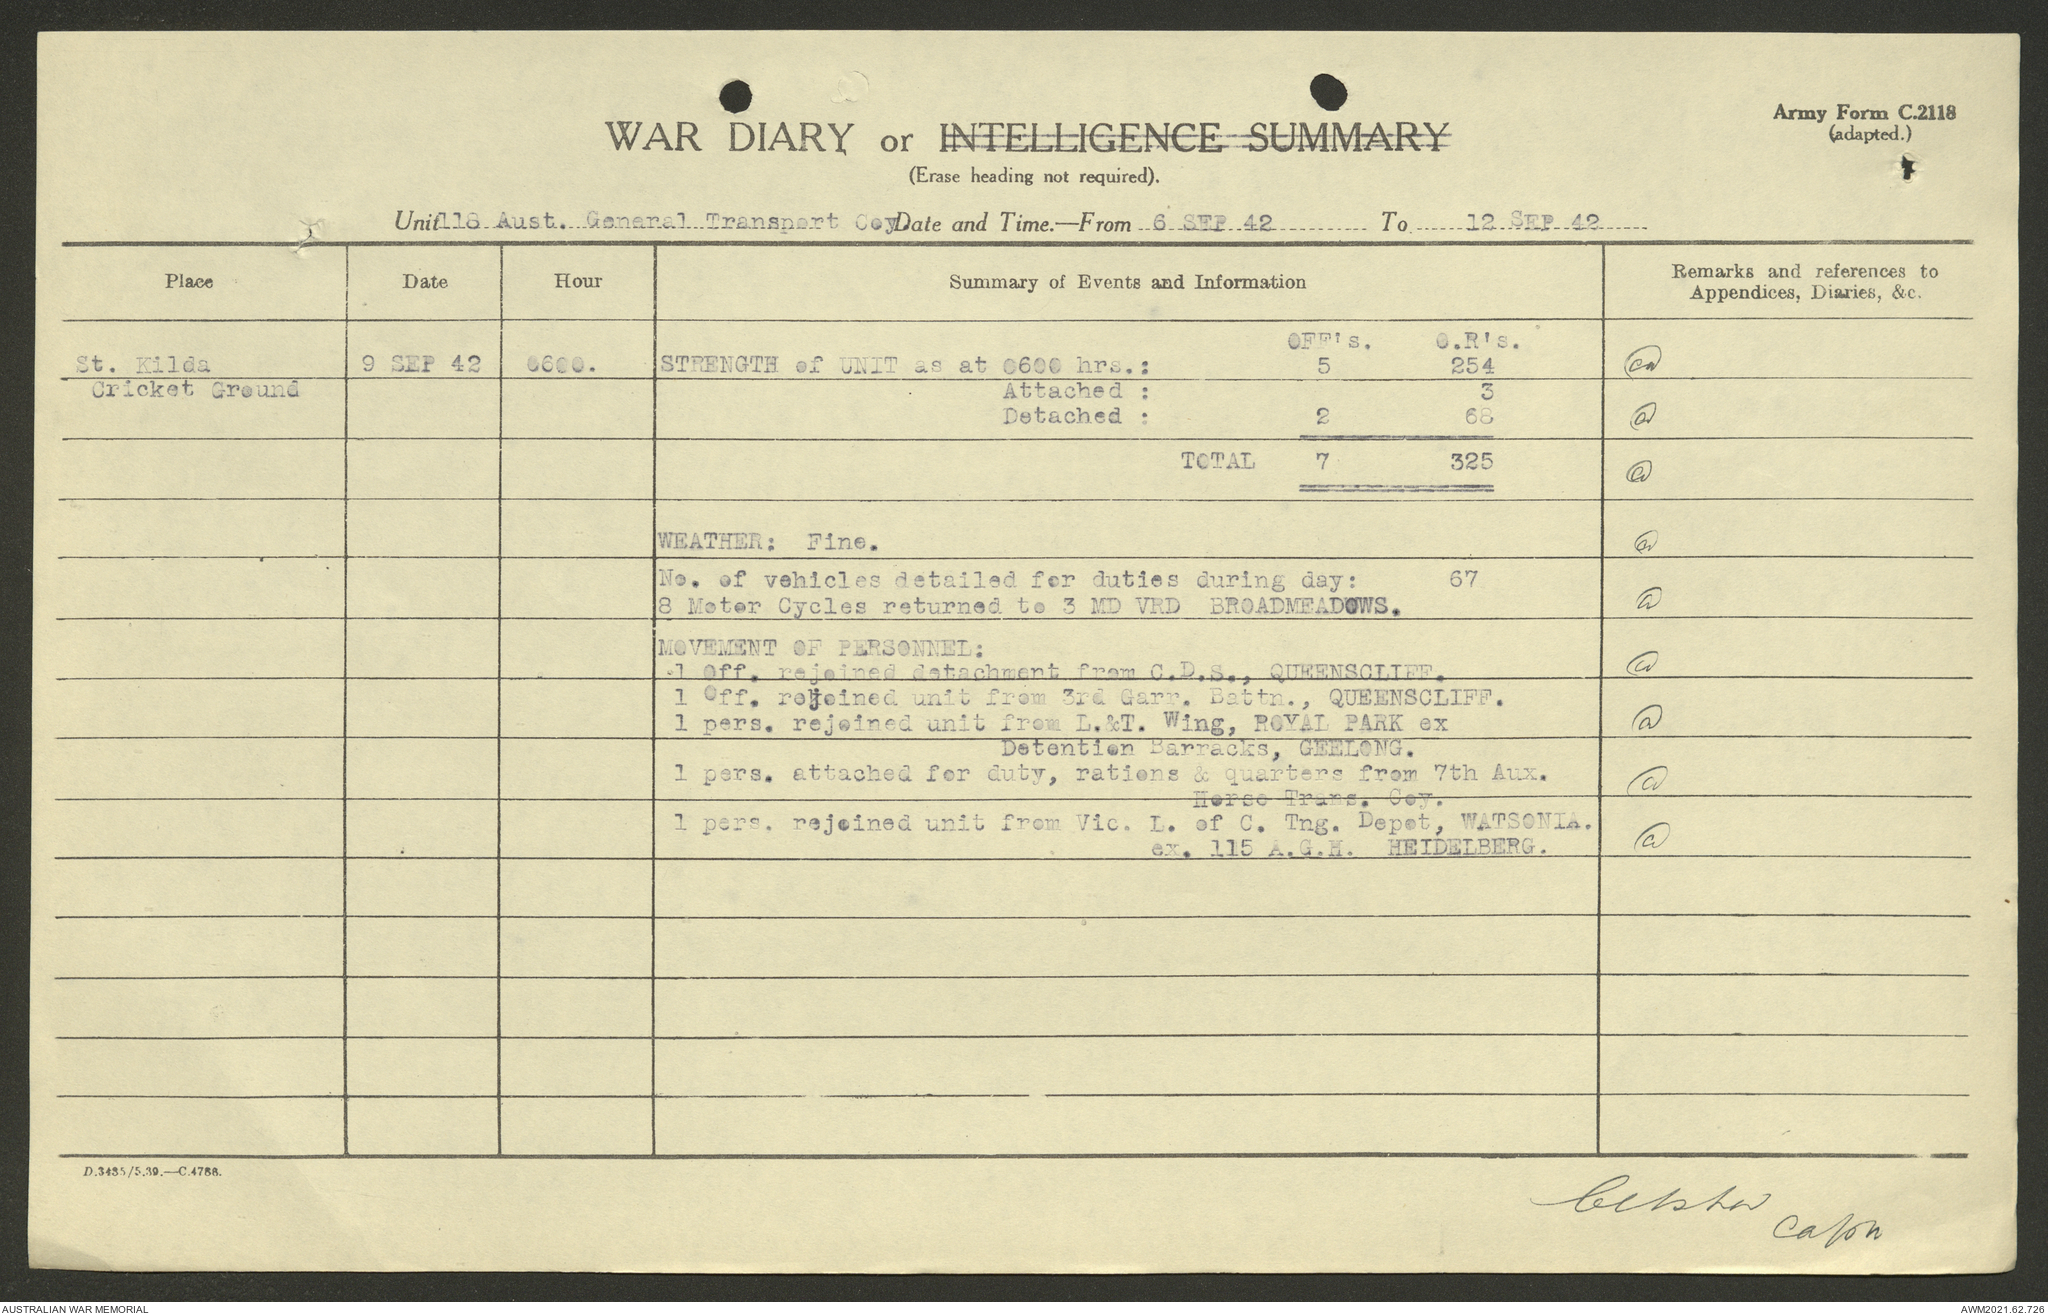 WAR DIARY or INTELLIGENCE SUMMARY
(Erase heading not required).
Army Form C.2118
(adapted.)
Unit 118 Aust. General Transport Coy Date and Time.—From 6 SEP 42 To 12 SEP 42
Place Date Hour Summary of Events and Information Remarks and references to
Appendices, Diaries, &c.
OFF's. O.R's.
St. Kilda 9 SEP 42 0600. STRENGTH of UNIT as at 0600 hrs.: 5 254
Cricket Ground Attached : 3
Detached : 2 68
TOTAL 7 325
WEATHER: Fine.
No. of vehicles detailed for duties during day: 67
8 Motor Cycles returned to 3 MD VRD BROADMEADOWS.
MOVEMENT OF PERSONNEL:
1 Off. rejoined detachment from C.D.S., QUEENSCLIFF.
1 Off. rejoined unit from 3rd Garr. Battn., QUEENSCLIFF.
1 pers. rejoined unit from L.&T. Wing, ROYAL PARK ex
Detention Barracks, GEELONG.
1 pers. attached for duty, rations & quarters from 7th Aux.
Horse Trans. Coy.
1 pers. rejoined unit from Vic. L. of C. Tng. Depot, WATSONIA.
ex. 115 A.G.H. HEIDELBERG.
D.3485/5.39.—C.4786.
Captn
AUSTRALIAN WAR MEMORIAL AWM2021.62.726